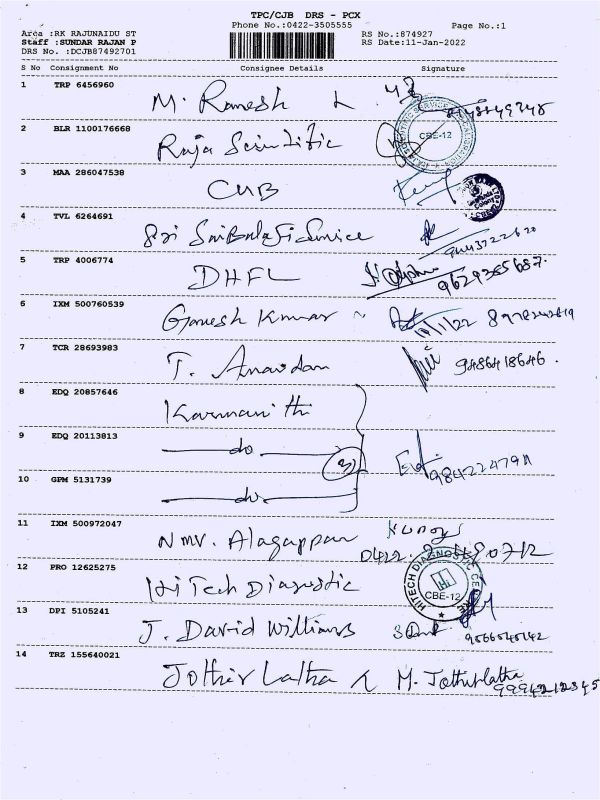 TPC/CJB DRS - PCX
Phone No.:0422-3505555 Page No.:1
Area :RK RAJUNAIDU ST RS No.:874927
Staff :SUNDAR RAJAN P RS Date:11-Jan-2022
DRS No. :DCJB87492701
S No Consignment No Consignee Details Signature
1 TRP 6456960 M. Ramesh
2 BLR 1100176668 Raja Scientific CBE-12
3 MAA 286047538 CUB
4 TVL 6264691 Sri SaiBalaji Service
5 TRP 4006774 DHFL 9629365687.
6 IXM 500760539 Ganesh Kumar 11/1/22
7 TCR 28693983 T. Anandan 9486418646.
8 EDQ 20857646 Karmanithi
9 EDQ 20113813 do 3
10 GPM 5131739 do
11 IXM 500972047 Nmv. Alagappan
12 PRO 12625275 HiTech Diagnostic HITECH DIAGNOSTIC CENTRE CBE-12
13 DPI 5105241 J. David Williams
14 TRZ 155640021 Jothir Latha M. Jothirlatha
9994212345